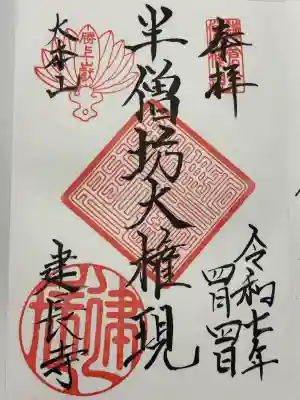 奉拝
令和七年
四月四日
半僧坊大権現
大本山
勝上嶽
建長寺